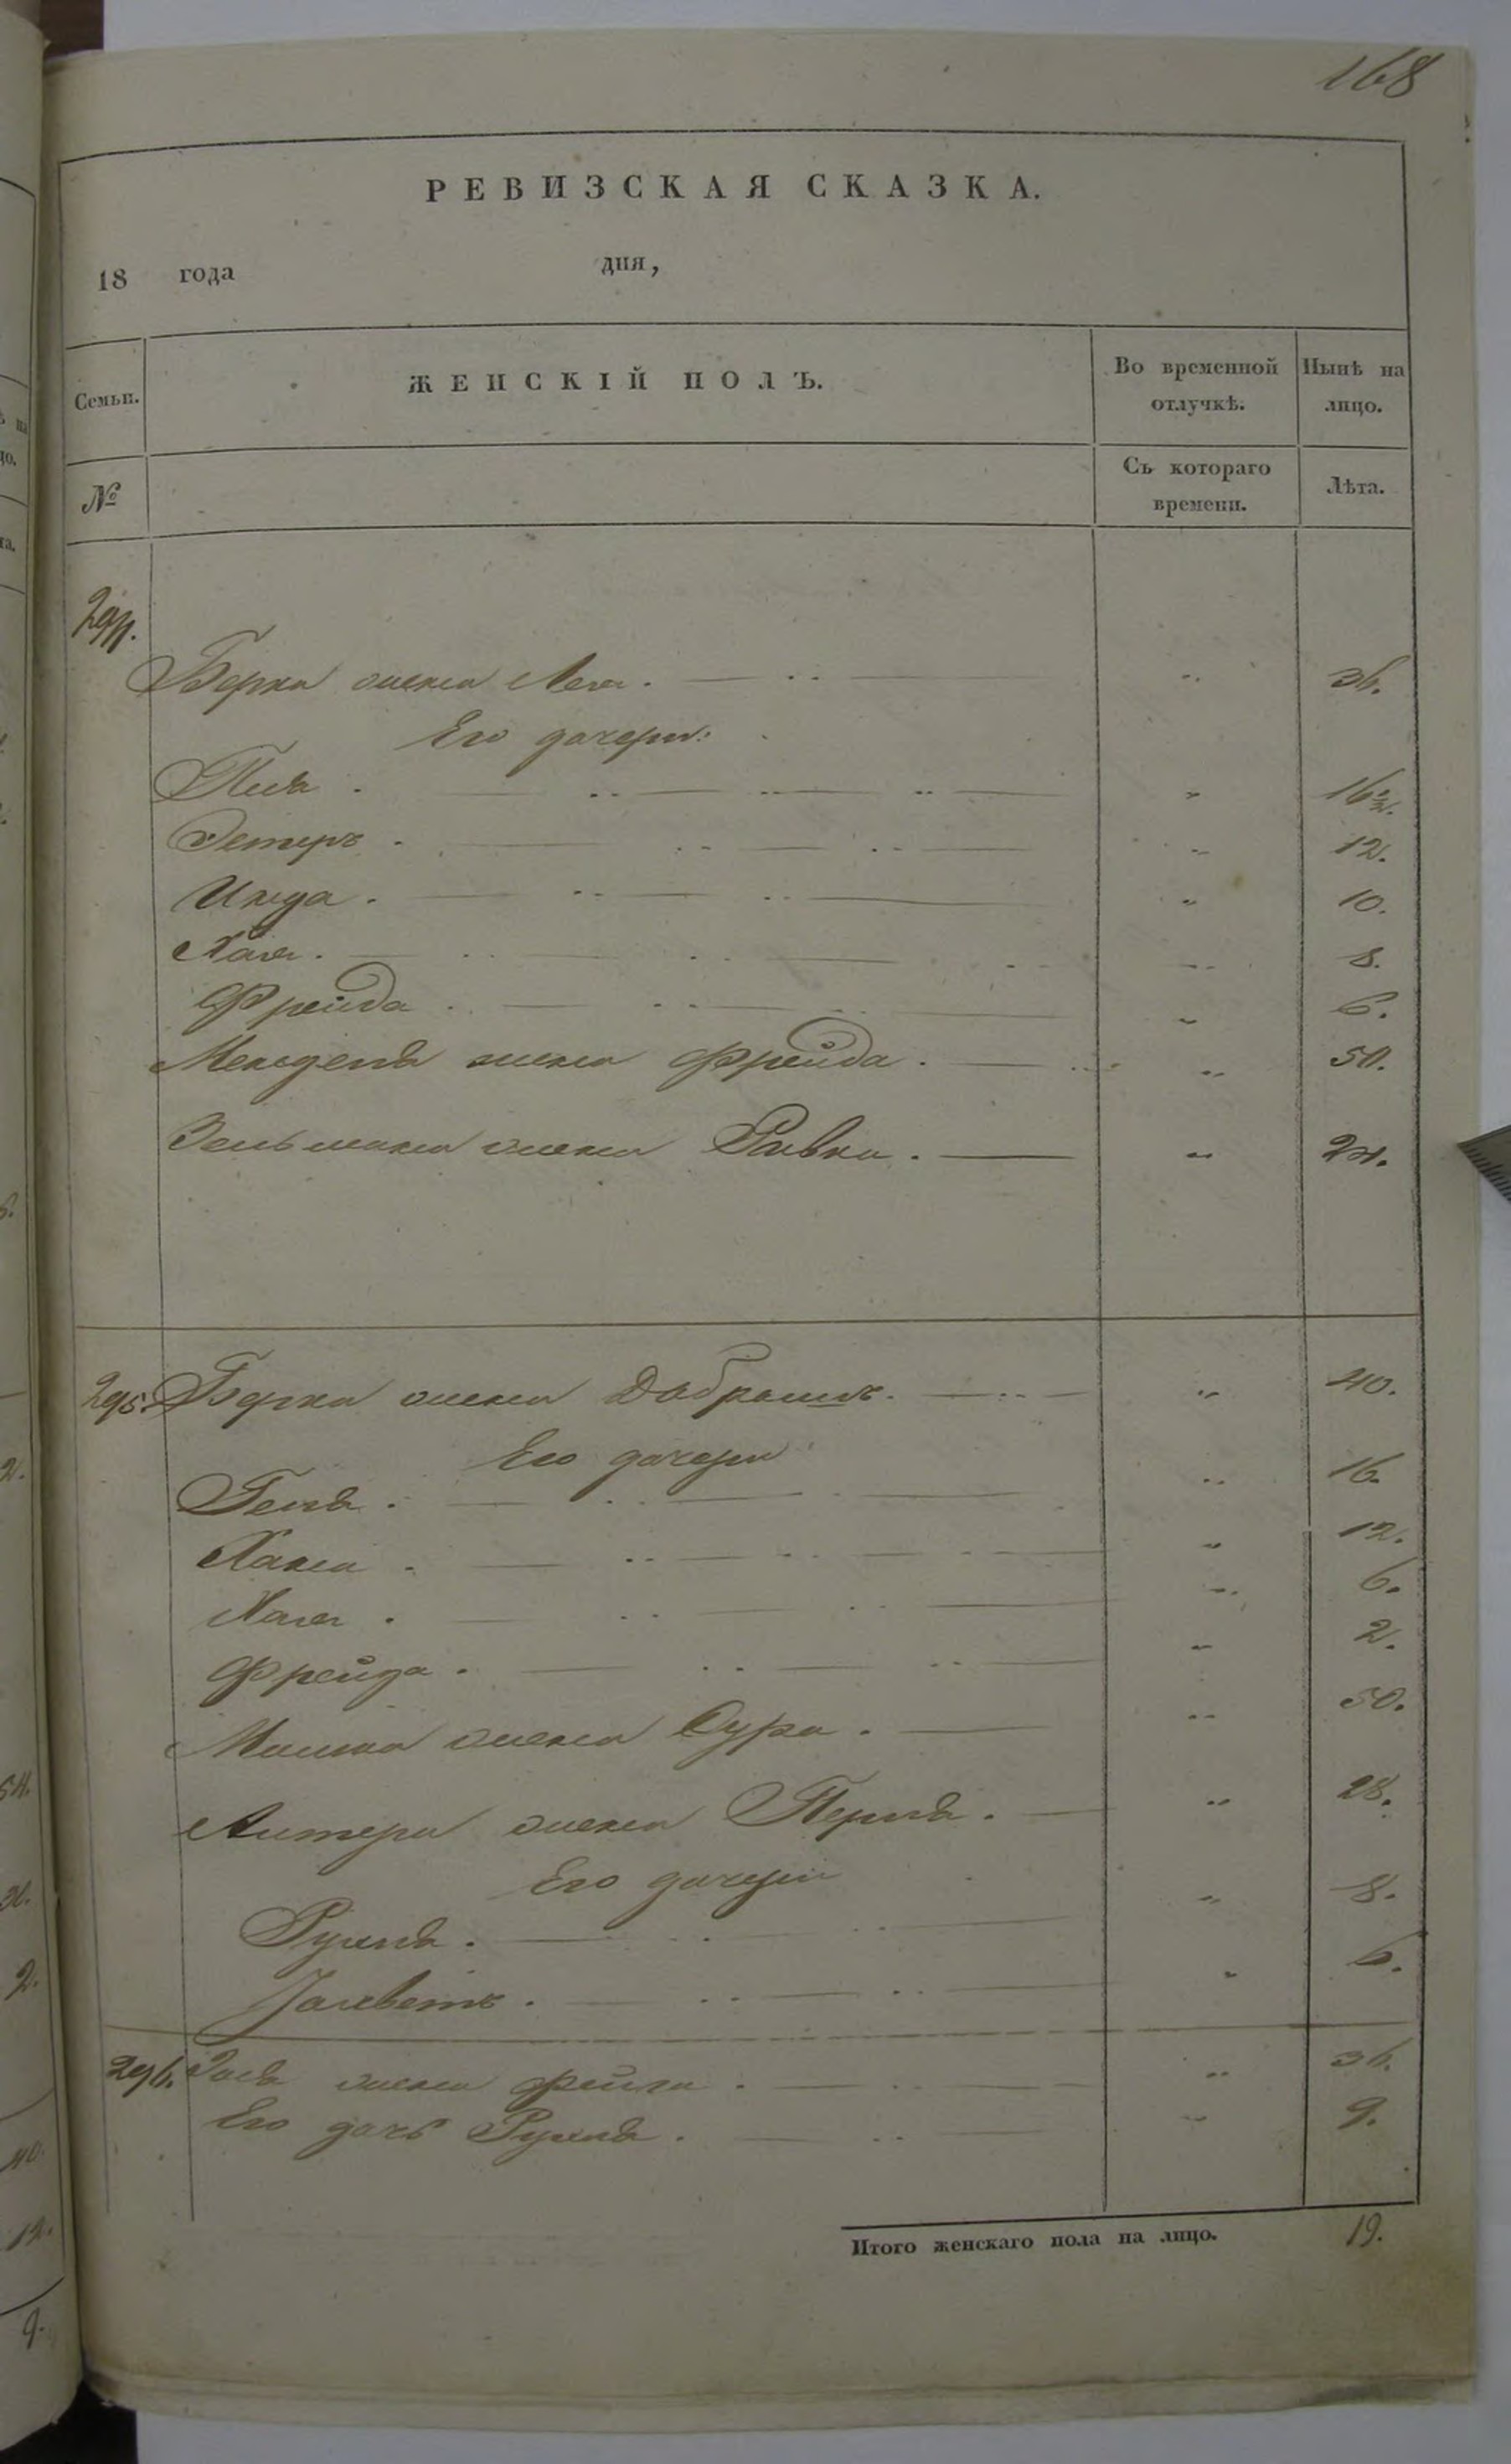 168
РЕВИЗСКАЯ СКАЗКА.
18 года дня,
Семьи. ЖЕНСКІЙ ПОЛЪ. Во временной отлучкѣ. Нынѣ на лицо.
№ Съ котораго времени. Лѣта.
294.
Берка жена Лея. 36.
Его дочери:
16½.
Эстеръ. 12.
10.
Хая. 8.
Фрейда. 6.
Менделя жена Фрейда. 50.
Зельмана жена Ривка. 24.
295. Берка жена Добрышъ. 40.
Его дочери
Геня. 16.
Хана. 12.
Хая. 6.
Фрейда. 2.
жена Сура. 50.
жена Перля. 28.
Его дочери
Рухля. 8.
6.
296. жена Фейга. 36.
Его дочь Рухля. 9.
Итого женскаго пола на лицо. 19.